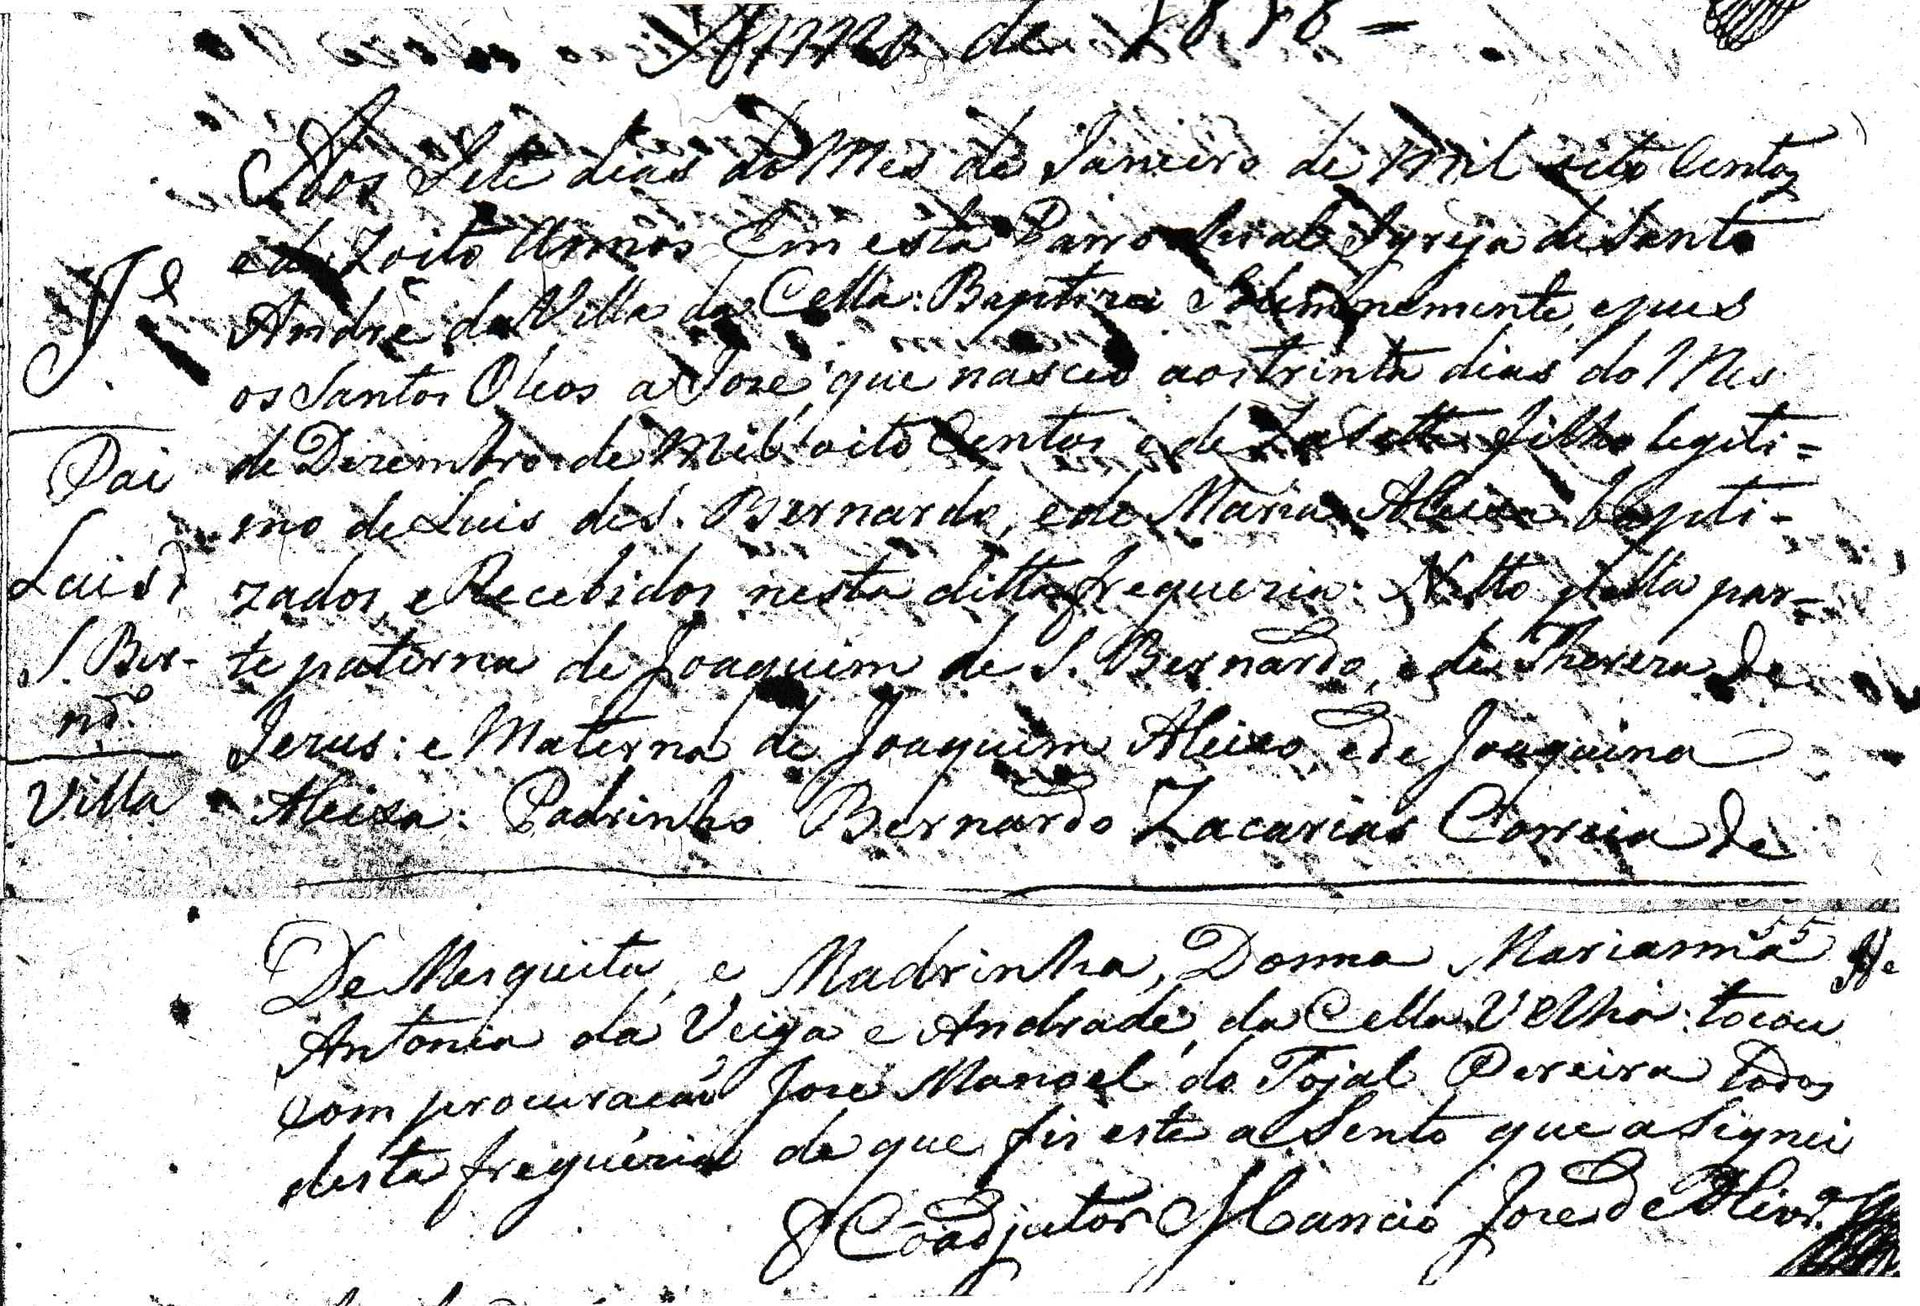 Anno de 1818 =
Aos Sete dias do Mes de Janeiro de mil oito Centos
e de Zoito Annos Em esta Parrochial Igreja de Santo
André da Villa da Cella: Baptizei Solemnemente, e pus
os Santos Oleos a José, que nasceo aos trinta dias do Mes
de Dezembro de Mil oito Centos e de Zasette filho legiti=
mo de Luis de S. Bernardo, e de Maria Aleixa bapti-
zados, e Recebidos nesta ditta freguezia: Netto pella par-
te paterna de Joaquim de S. Bernardo, e de Thereza de
Jezus: e Materna de Joaquim Aleixo, e de Joaquina
Aleixa: Padrinho Bernardo Zacarias Correia de
Je
Pai
Luis d
S. Ber-
ndo
Villa
55
De Mesquita, e Madrinha, Donna Marianna
Antonia da Veiga e Andrade, da Cella Velha: tocou
com procuração José Manoel do Tojal Pereira todos
desta freguezia de que fis este aSento que aSignei
O Coadjutor Amancio Jose de Olivra